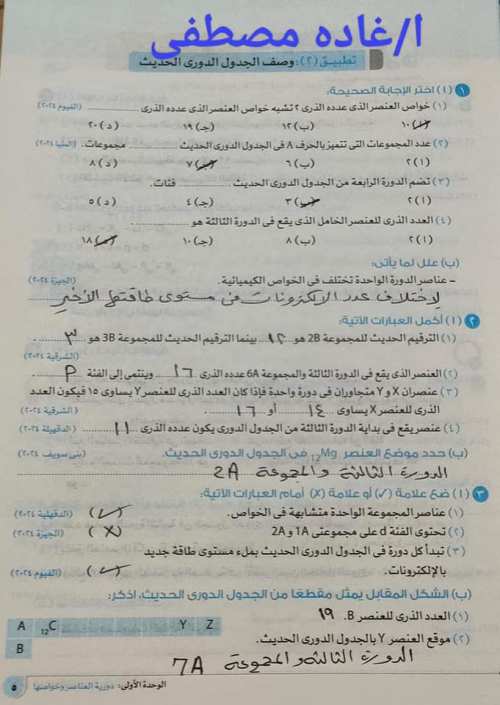 ا/غاده مصطفى
تطبيق (٢): وصف الجدول الدورى الحديث
١ (أ) اختر الإجابة الصحيحة:
(١) خواص العنصر الذى عدده الذرى ٢ تشبه خواص العنصر الذى عدده الذرى .......... (الفيوم ٢٠٢٤)
(أ) ١٠ (ب) ١٢ (جـ) ١٩ (د) ٢٠
(٢) عدد المجموعات التى تتميز بالحرف A فى الجدول الدورى الحديث .......... مجموعات. (المنيا ٢٠٢٤)
(أ) ٢ (ب) ٦ (جـ) ٧ (د) ٨
(٣) تضم الدورة الرابعة من الجدول الدورى الحديث .......... فئات.
(أ) ٢ (ب) ٣ (جـ) ٤ (د) ٥
(٤) العدد الذرى للعنصر الخامل الذى يقع فى الدورة الثالثة هو ..........
(أ) ٢ (ب) ٨ (جـ) ١٠ (د) ١٨
(ب) علل لما يأتى:
– عناصر الدورة الواحدة تختلف فى الخواص الكيميائية. (الجيزة ٢٠٢٤)
لاختلاف عدد الالكترونات فى مستوى طاقتها الأخير
٢ (أ) أكمل العبارات الآتية:
(١) الترقيم الحديث للمجموعة 2B هو ١٢ بينما الترقيم الحديث للمجموعة 3B هو ٣
(الشرقية ٢٠٢٤)
(٢) العنصر الذى يقع فى الدورة الثالثة والمجموعة 6A عدده الذرى ١٦ وينتمى إلى الفئة P
(٣) عنصران X و Y متجاوران فى دورة واحدة فإذا كان العدد الذرى للعنصر Y يساوى ١٥ فيكون العدد
الذرى للعنصر X يساوى ١٤ أو ١٦ (الشرقية ٢٠٢٤)
(٤) عنصر يقع فى بداية الدورة الثالثة من الجدول الدورى يكون عدده الذرى ١١ (الدقهلية ٢٠٢٤)
(ب) حدد موضع العنصر 12Mg فى الجدول الدورى الحديث. (بنى سويف ٢٠٢٤)
الدورة الثالثة والمجموعة 2A
٣ (أ) ضع علامة (✓) أو علامة (X) أمام العبارات الآتية:
(١) عناصر المجموعة الواحدة متشابهة فى الخواص. (✓) (الدقهلية ٢٠٢٤)
(٢) تحتوى الفئة d على مجموعتى 1A و 2A (X) (الجيزة ٢٠٢٤)
(٣) تبدأ كل دورة فى الجدول الدورى الحديث بملء مستوى طاقة جديد
بالإلكترونات. (✓) (الفيوم ٢٠٢٤)
(ب) الشكل المقابل يمثل مقطعًا من الجدول الدورى الحديث، اذكر:
(١) العدد الذرى للعنصر B. ١٩
A 12C Y Z
(٢) موقع العنصر Y بالجدول الدورى الحديث.
B
الدورة الثالثة والمجموعة 7A
الوحدة الأولى: دورية العناصر وخواصها ٥